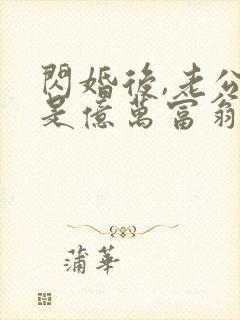 閃婚後,老公
是億萬富翁
蒲華